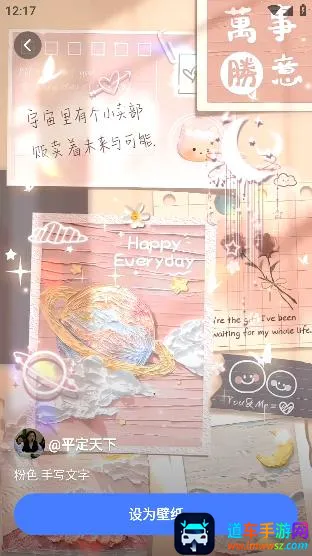 12:17
萬事
勝意
宇宙里有个小卖部
贩卖着未来与可能.
Happy
Everyday
're the gift I've been
waiting for my whole life.
You & Me =
@平定天下
粉色 手写文字
设为壁纸
道车手游网